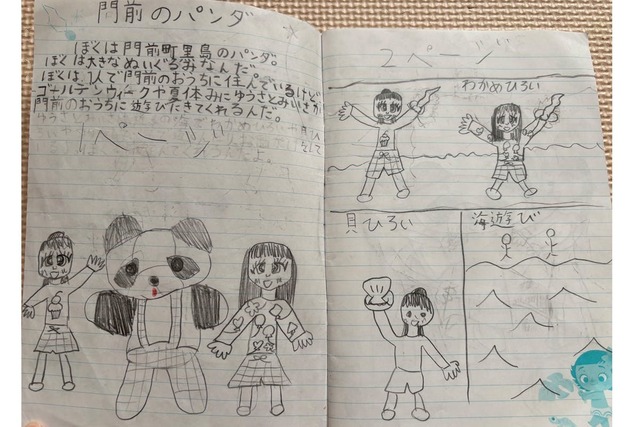 門前のパンダ
ぼくは門前町黒島のパンダ。
ぼくは大きなぬいぐるみなんだ。
ぼくは1人で門前のおうちに住んでいるけど
ゴールデンウィークや夏休みにゆうさとみいさが
門前のおうちに遊びにきてくれるんだ。
1ページ
2ページ
わかめひろい
貝ひろい
海遊び